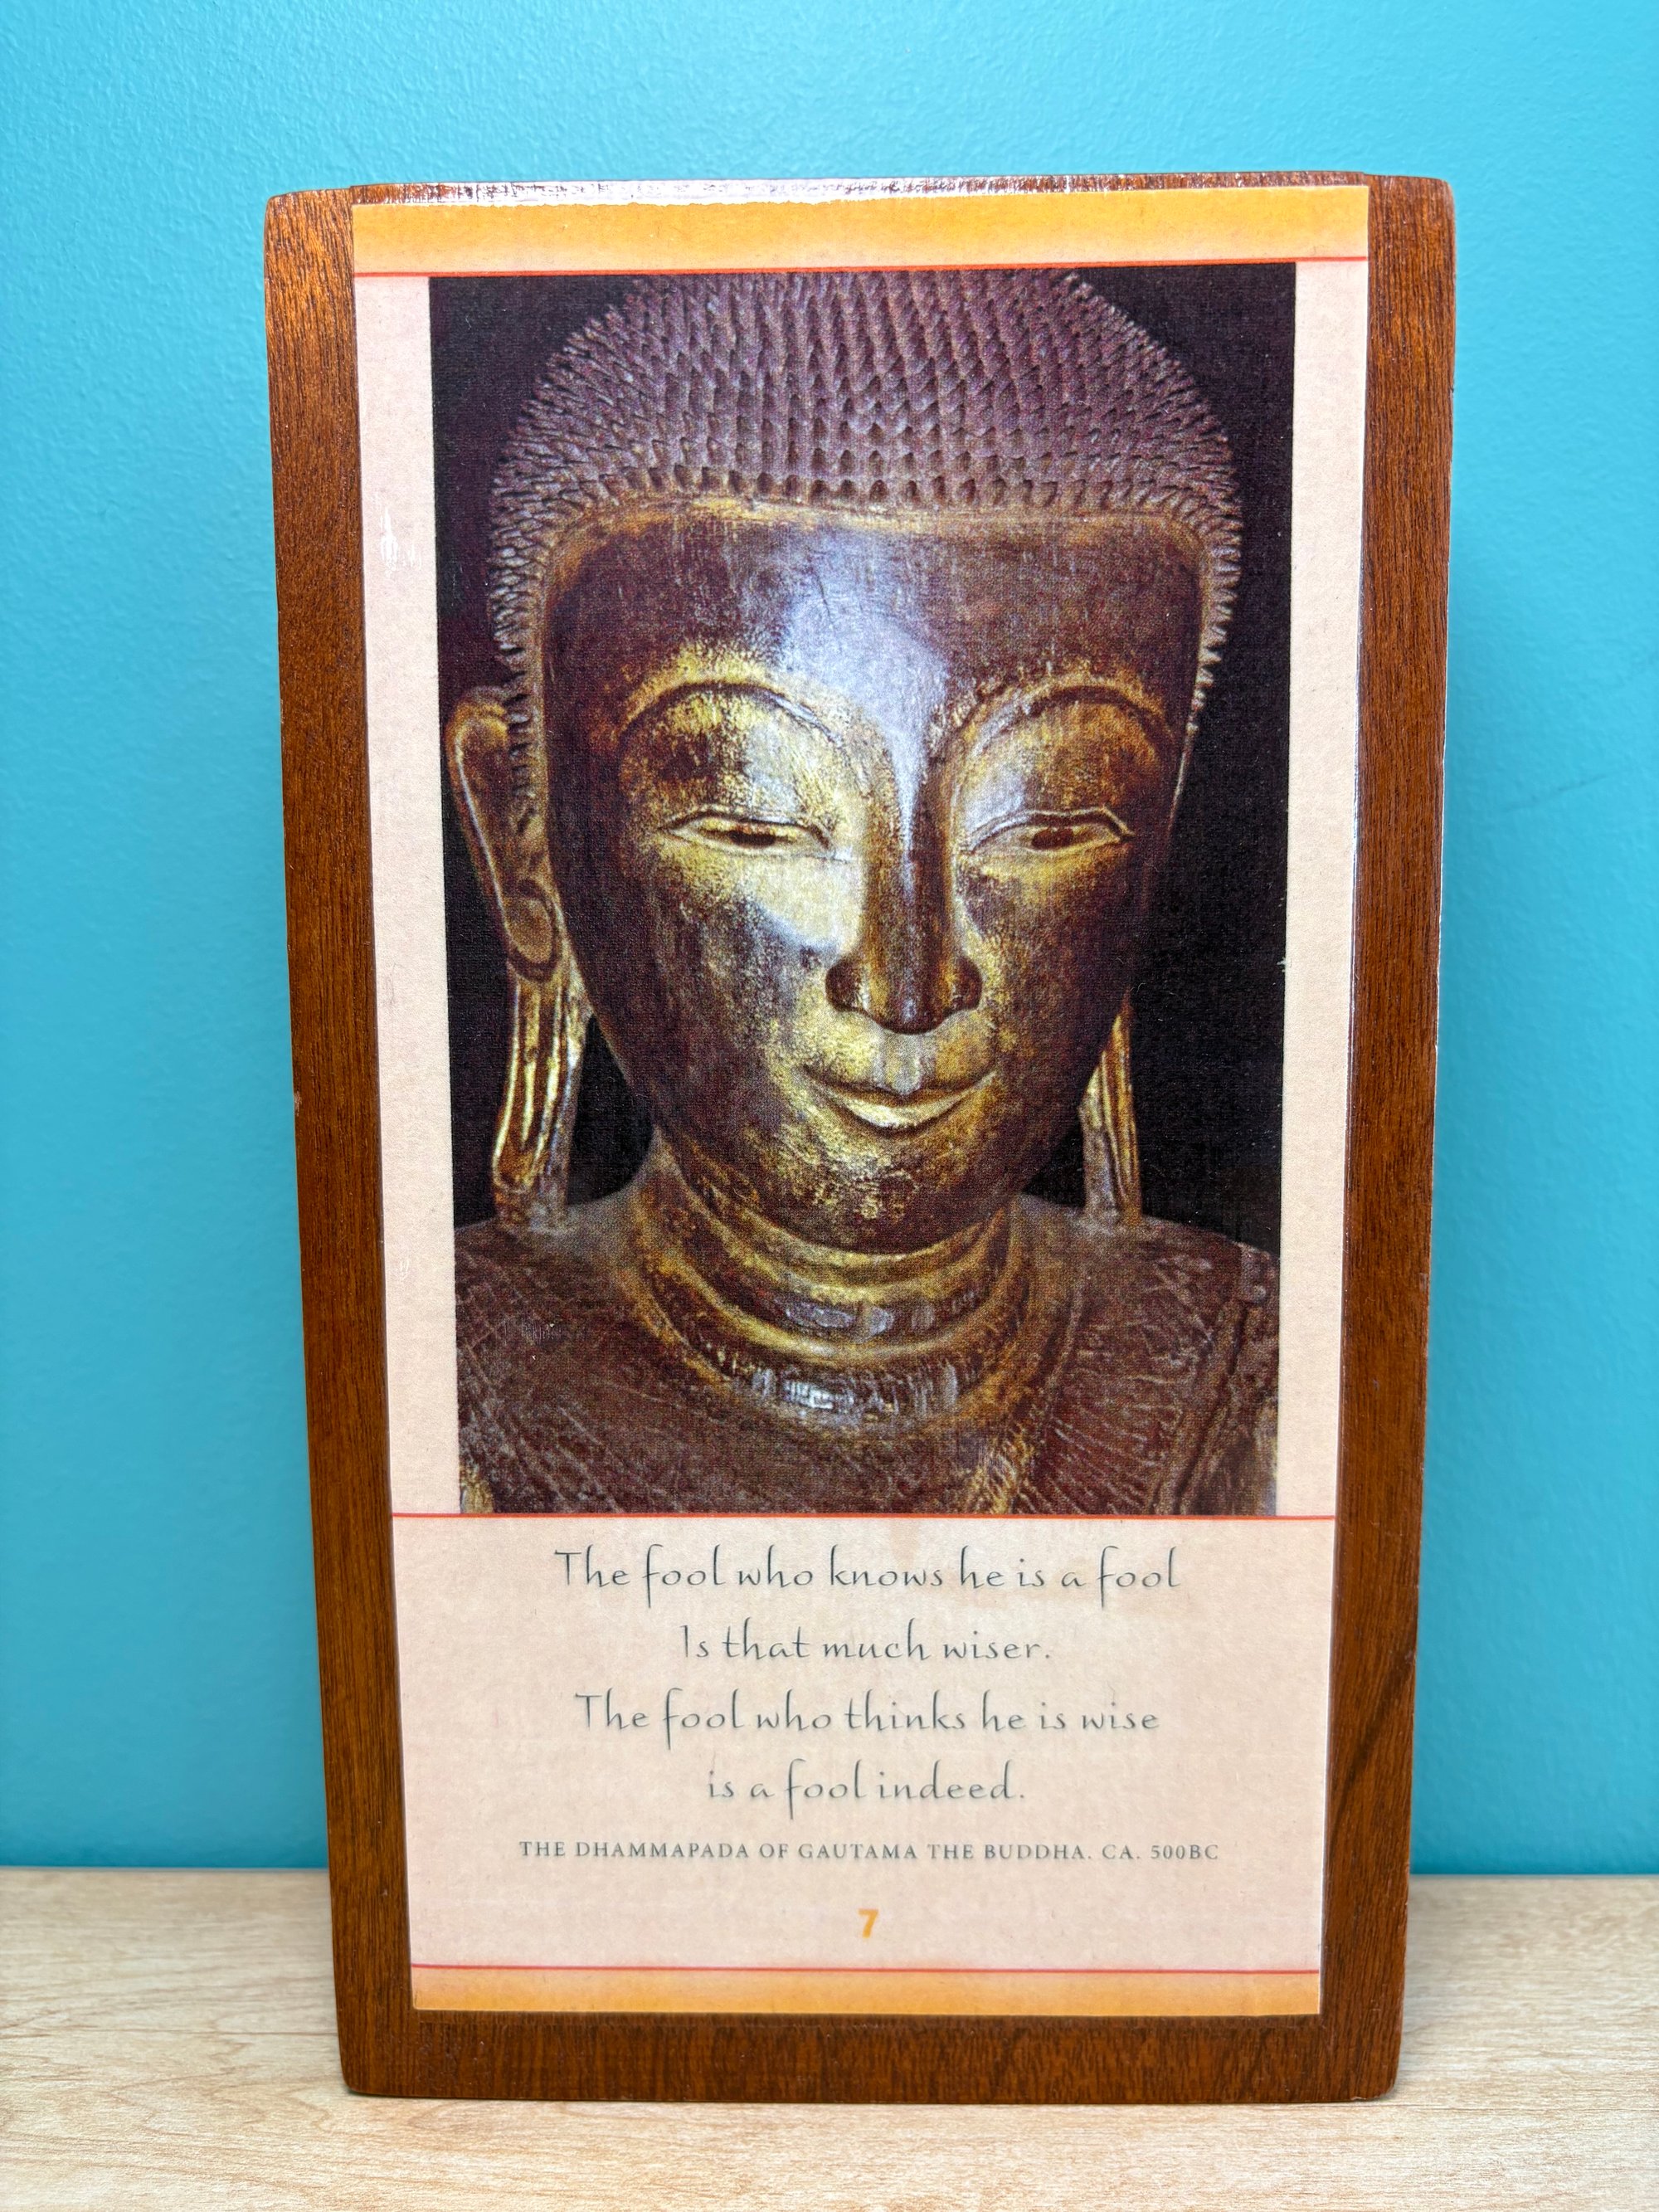 The fool who knows he is a fool
Is that much wiser.
The fool who thinks he is wise
is a fool indeed.
THE DHAMMAPADA OF GAUTAMA THE BUDDHA. CA. 500BC
7